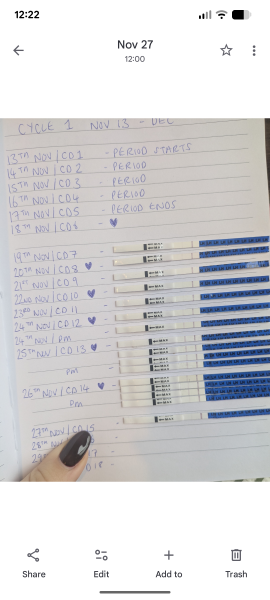 12:22
Nov 27
12:00
CYCLE 1 NOV 13 - DEC
13TH NOV / CD 1 - PERIOD STARTS
14TH NOV / CD 2 - PERIOD
15TH NOV / CD 3 - PERIOD
16TH NOV / CD4 - PERIOD
17TH NOV / CD5 - PERIOD ENDS
18TH NOV / CD6 - ♥
19TH NOV / CD 7
20TH NOV / CD 8 ♥
21ST NOV / CD 9
22ND NOV / CD 10 ♥
23RD NOV / CD 11
24TH NOV / CD 12 ♥
24TH NOV / PM
25TH NOV / CD 13 ♥
PM
26TH NOV / CD 14 ♥
PM
27TH NOV / CD 15
28TH NOV
Share
Edit
Add to
Trash